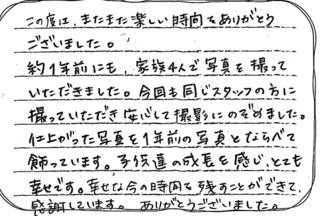 この度は、またまた楽しい時間をありがとう
ございました。
約1年前にも、家族4人で写真を撮って
いただきました。今回も同じスタッフの方に
撮っていただき安心して撮影にのぞめました。
仕上がった写真を1年前の写真とならべて
飾っています。子供達の成長を感じ、とても
幸せです。幸せな今の時間を残すことができて、
感謝しています。ありがとうございました。